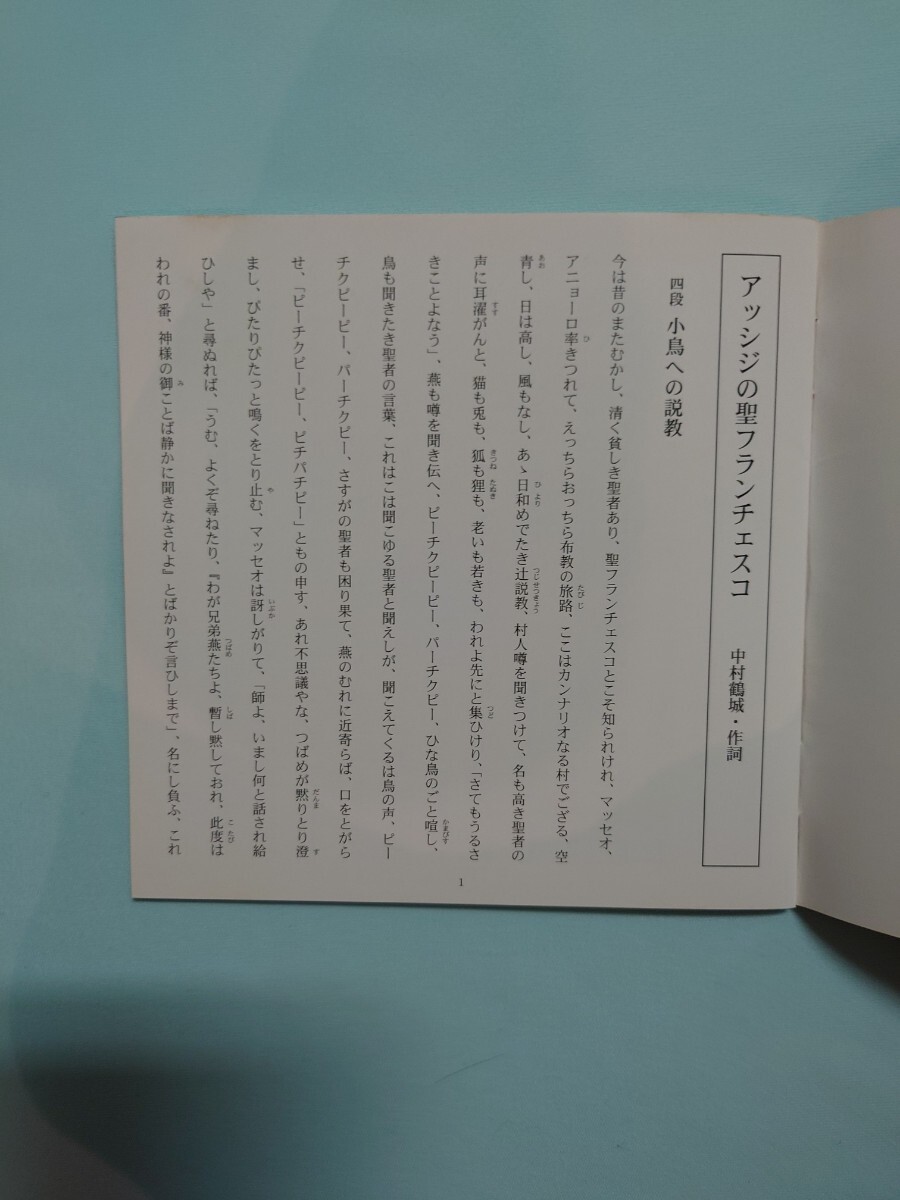 アッシジの聖フランチェスコ　中村鶴城・作詞
四段　小鳥への説教
今は昔のまたむかし、清く貧しき聖者あり、聖フランチェスコとこそ知られけれ、マッセオ、
アニョーロ率きつれて、えっちらおっちら布教の旅路、ここはカンナリオなる村でござる、空
青し、日は高し、風もなし、あゝ日和めでたき辻説教、村人噂を聞きつけて、名も高き聖者の
声に耳濯がんと、猫も兎も、狐も狸も、老いも若きも、われよ先にと集ひけり、「さてもうるさ
きことよなう」、燕も噂を聞き伝へ、ピーチクピーピー、パーチクピー、ひな鳥のごと喧し、
鳥も聞きたき聖者の言葉、これはこは聞こゆる聖者と聞えしが、聞こえてくるは鳥の声、ピー
チクピーピー、パーチクピー、さすがの聖者も困り果て、燕のむれに近寄らば、口をとがら
せ、「ピーチクピーピー、ピチパチピー」ともの申す、あれ不思議やな、つばめが黙りとり澄
まし、ぴたりぴたっと鳴くをとり止む、マッセオは訝しがりて、「師よ、いまし何と話され給
ひしや」と尋ぬれば、「うむ、よくぞ尋ねたり、『わが兄弟燕たちよ、暫し黙しておれ、此度は
われの番、神様の御ことば静かに聞きなされよ』とばかりぞ言ひしまで」、名にし負ふ、これ
1